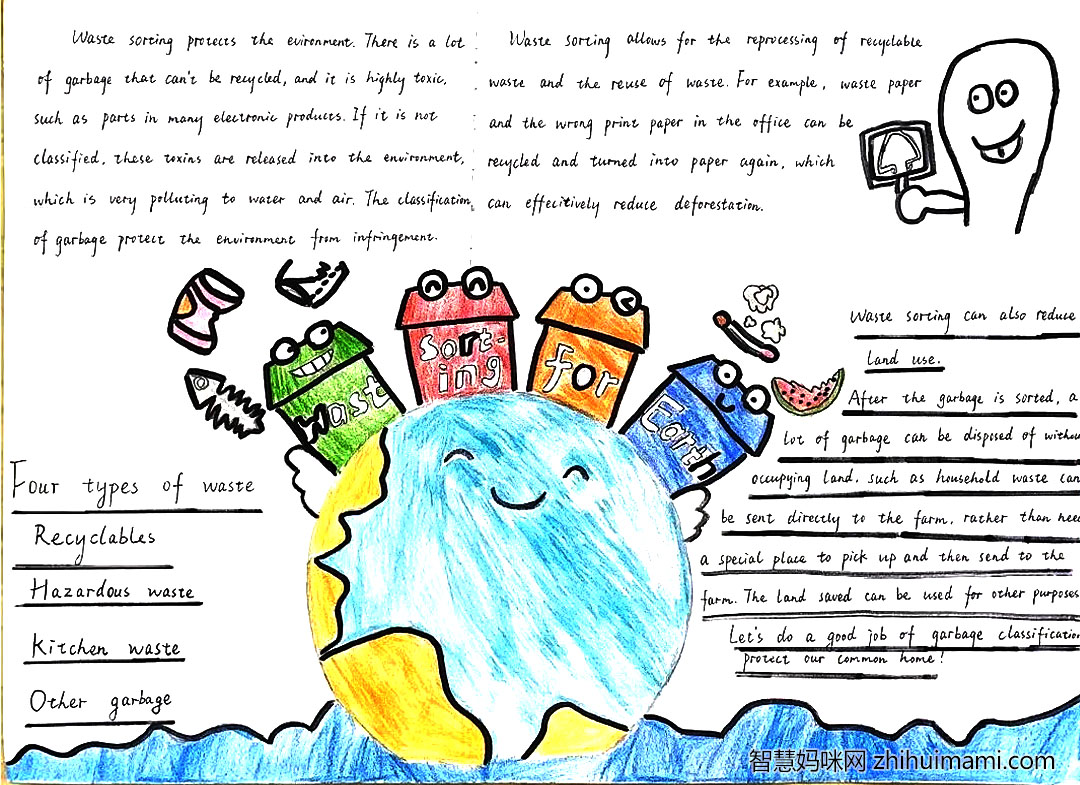 Waste sorting protects the evironment. There is a lot
of garbage that can't be recycled, and it is highly toxic,
such as parts in many electronic products. If it is not
classified, these toxins are released into the environment,
which is very polluting to water and air. The classification
of garbage protect the environment from infringement.
Waste sorting allows for the reprocessing of recyclable
waste and the reuse of waste. For example, waste paper
and the wrong print paper in the office can be
recycled and turned into paper again, which
can effecitively reduce deforestation.
Wast
Sort-
ing
for
Earth
Four types of waste
Recyclables
Hazardous waste
Kitchen waste
Other garbage
Waste sorting can also reduce
land use.
After the garbage is sorted, a
lot of garbage can be disposed of withou
occupying land, such as household waste can
be sent directly to the farm, rather than need
a special place to pick up and then send to the
farm. The land saved can be used for other purposes.
Let's do a good job of garbage classification
protect our common home!
智慧妈咪网 zhihuimami.com